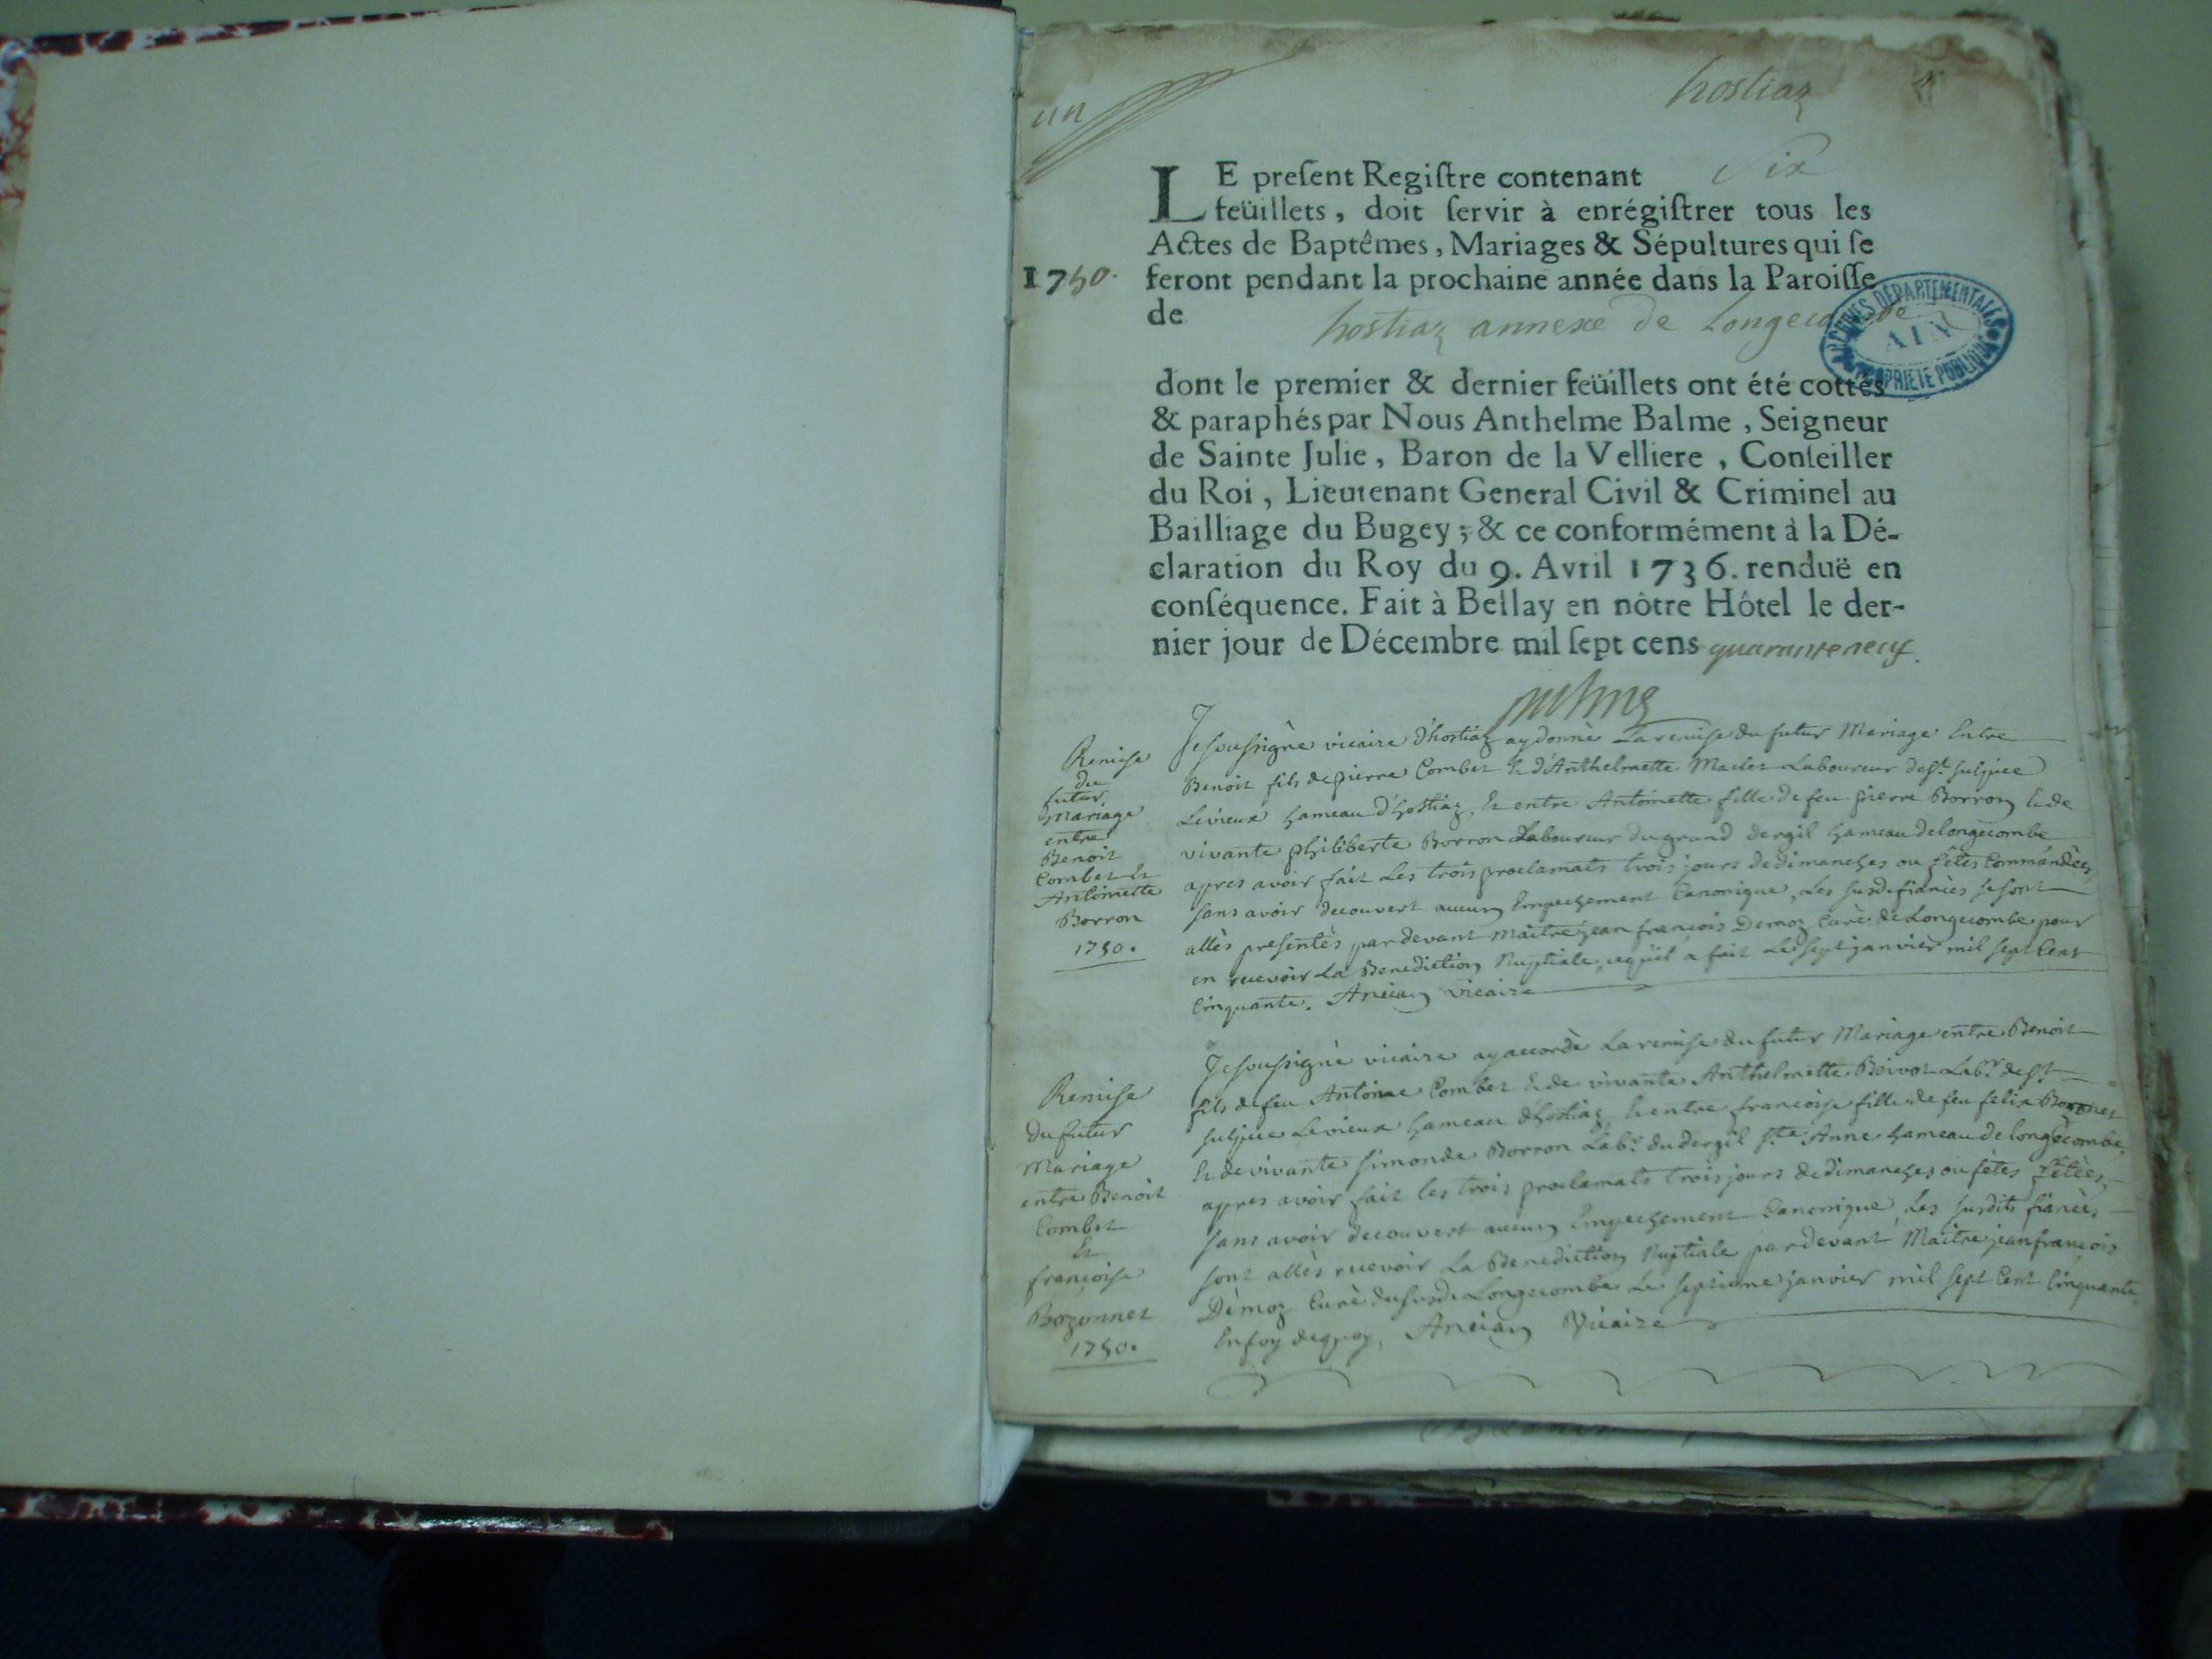 un
hostiaz
LE preſent Regiſtre contenant Six
feüillets, doit ſervir à enrégiſtrer tous les
Actes de Baptêmes, Mariages & Sépultures qui ſe
1750. feront pendant la prochaine année dans la Paroiſſe
de hostiaz annexe de Longecombe
ARCHIVES DÉPARTEMENTALES
AIN
PROPRIETE PUBLIQUE
dont le premier & dernier feüillets ont été cottés
& paraphés par Nous Anthelme Balme, Seigneur
de Sainte Julie, Baron de la Velliere, Conſeiller
du Roi, Lieutenant General Civil & Criminel au
Bailliage du Bugey; & ce conformément à la Dé-
claration du Roy du 9. Avril 1736. renduë en
conſéquence. Fait à Bellay en nôtre Hôtel le der-
nier jour de Décembre mil ſept cens quaranteneuf.
Remise
du
futur
Mariage
entre
Benoit
Combet Et
Antoinette
Borron
1750.
Je soussigné vicaire d'hostiaz ay donné La remise du futur Mariage Entre
Benoit fils de pierre Combet & d'Anthelmette Maclet Laboureur de st. sulpice
Levieux hameau d'hostiaz, & entre Antoinette fille de feu pierre Borron & de
vivante philiberte Borron Laboureur du grand dergil hameau de longecombe
apres avoir fait Les trois proclamats trois jours de dimanches ou fêtes Commandées,
sans avoir decouvert aucun Empechement Canonique, Les susd. fiancés se sont
allés presentés par devant Maitre jean françois Demoz Curé de Longecombe pour
en recevoir La Benediction Nuptiale, ce qu'il a fait Le sept janvier mil sept Cent
Cinquante. Ancian vicaire
Remise
du futur
Mariage
entre Benoit
Combet
Et
françoise
Bozonnet
1750.
Je soussigné vicaire ay accordé La remise du futur Mariage entre Benoit
fils de feu Antoine Combet & de vivante Anthelmette Beivot Lab.r de st.
sulpice Levieux hameau d'hostiaz, & entre françoise fille de feu felix Bozonet
& de vivante simonde Borron Lab.r du dergil s.te Anne hameau de longecombe.
apres avoir fait les trois proclamats trois jours de dimanches ou fêtes fêtées,
sans avoir decouvert aucun Empechement Canonique, Les susdits fiancés
sont allés recevoir La Benediction Nuptiale par devant Maitre jean françois
Démoz Curé du susd. Longecombe Le septieme janvier mil sept Cent Cinquante.
En foy de quoy. Ancian Vicaire